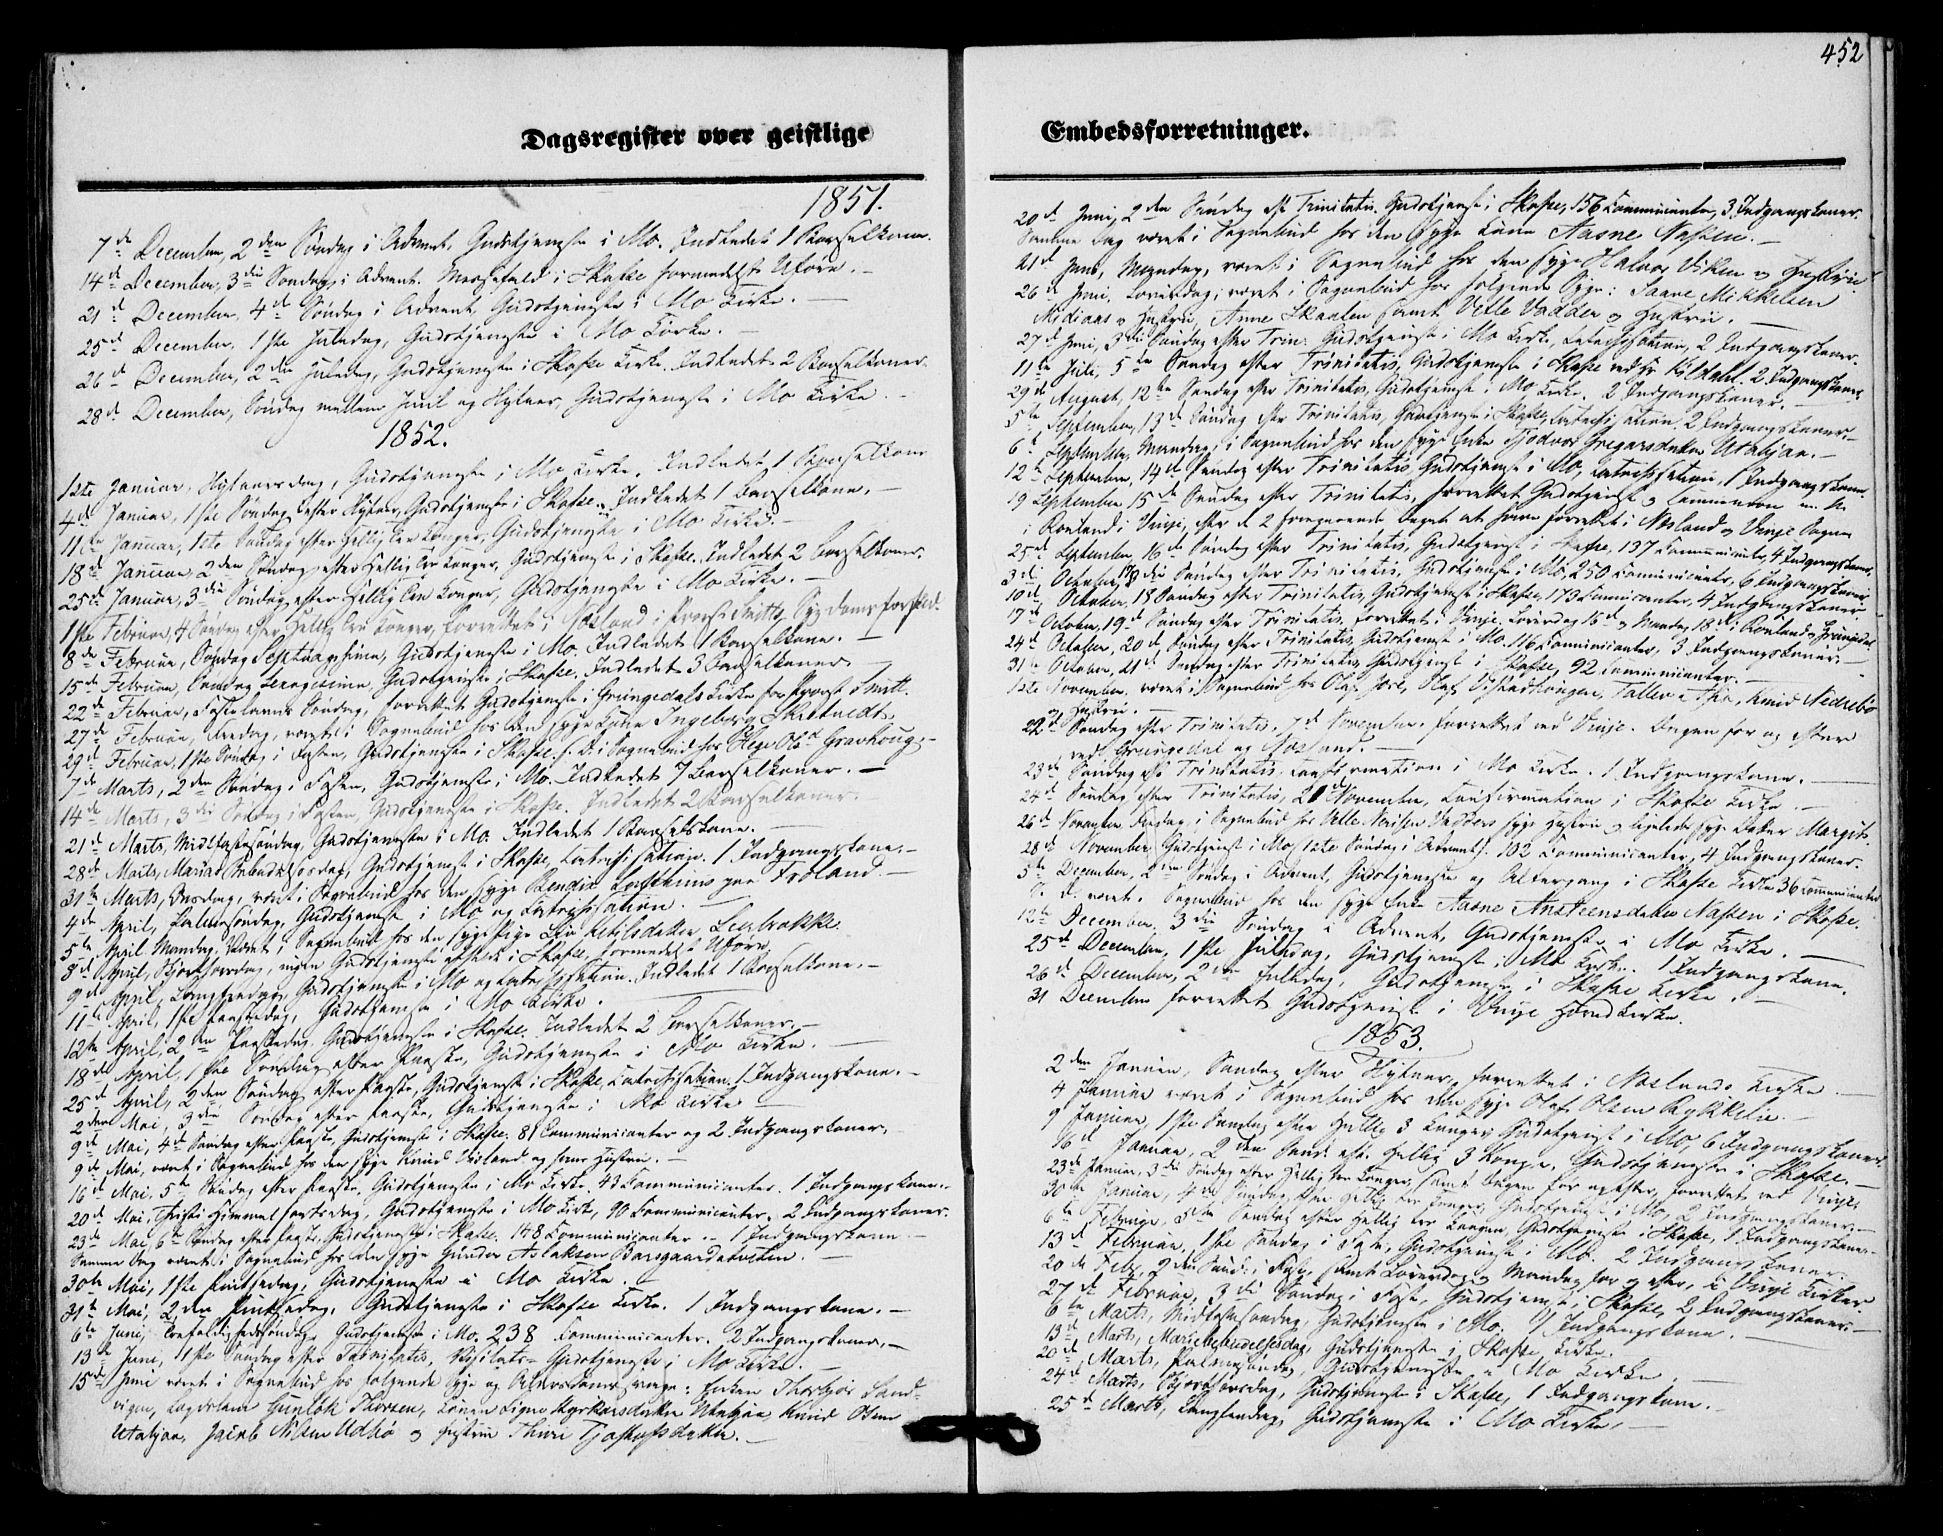 452
Dagsregister over geistlige Embedsforretninger.
1851.
7de December, 2den Søndag i Advent, Gudstjeneste i Mo. Indledet 1 Barselkone.
14de December, 3die Søndag i Advent. Messefald i Skafse formedelst Uføre. –
21de December, 4de Søndag i Advent, Gudstjeneste i Mo Kirke. –
25de December, 1ste Juledag, Gudstjeneste i Mo Kirke. –
26de December, 2den Juledag, Gudstjeneste i Skafse Kirke. Indledet 2 Barselkoner.
28de December, Søndag mellem Juul og Nytaar, Gudstjeneste i Mo Kirke. –
1852.
1ste Januar, Nytaarsdag, Gudstjeneste i Mo Kirke. Indledet 1 Barselkone
4de Januar, 1ste Søndag efter Nytaar, Gudstjeneste i Skafse. Indledet 1 Barselkone. –
11te Januar, 1ste Søndag efter Hellig tre Konger, Gudstjeneste i Mo Kirke. –
18de Januar, 2den Søndag efter Hellig tre Konger, Gudstjeneste i Skafse. Indledet 2 Barselkoner.
25de Januar, 3die Søndag efter Hellig tre Konger, Gudstjeneste i Mo Kirke. –
1ste Februar, 4 Søndag efter Hellig tre Konger, forrettet i Næsland i Provst Smitts Sygdoms forfald.
8de Februar, Søndag Septuagesima, Gudstjeneste i Mo. Indledet 1 Barselkone. –
15de Februar, Søndag Sexagesima, Gudstjeneste i Skafse. Indledet 3 Barselkoner
22de Februar, Fastelavns Søndag, forrettet Gudstjeneste i Grungedals Kirke for Provst Smitt.
27de Februar, Fredag, været i Sognebud hos den syge Kone Ingeborg Skretvedt.
29de Februar, 1ste Søndag i Fasten, Gudstjeneste i Skafse. s. D. i Sognebud hos Hege Olsd. Gravhoug. –
7de Marts, 2den Søndag i Fasten, Gudstjeneste i Mo. Indledet 7 Barselkoner. –
14de Marts, 3die Søndag i Fasten, Gudstjeneste i Skafse. Indledet 2 Barselkoner.
21de Marts, Midfastesøndag, Gudstjeneste i Mo. Indledet 1 Barselkone.
28de Marts, Mariæ Bebudelsesdag, Gudstjeneste i Skafse, Catechisation. 1 Indgangskone. –
31te Marts, Onsdag, været i Sognebud hos den syge Bendix paa Froland. –
4de April, Palmesøndag, Gudstjeneste i Mo og Catechisation. –
5te April Mandag, Været i Sognebud hos den syge Pige Liv Ketilsdatter Leerbrække.
8de April, Skjærthorsdag, ingen Gudstjeneste afholdt i Skafse, formedelst Uføre.
9de April, Langfredag, Gudstjeneste i Mo og Catechisation. Indledet 1 Barselkone. –
11te April, 1ste Paaskedag, Gudstjeneste i Mo Kirke. –
12te April, 2den Paaskedag, Gudstjeneste i Skafse. Indledet 2 Barselkoner. –
18de April, 1ste Søndag efter Paaske, Gudstjeneste i Mo Kirke. –
25de April, 2den Søndag efter Paaske, Gudstjeneste i Skafse, Catechisation. 1 Indgangskone. –
2den Mai, 3die Søndag efter Paaske, Gudstjeneste i Mo Kirke –
9de Mai, 4de Søndag efter Paaske, Gudstjeneste i Skafse. 81 Communicanter og 2 Indgangskoner.
9de Mai, været i Sognebud hos den syge Knud og hans Hustru. –
16de Mai, 5te Søndag efter Paaske, Gudstjeneste i Mo Kirke. 43 Communicanter. 1 Indgangskone. –
20de Mai, Christi Himmelfartsdag, Gudstjeneste i Mo Kirke, 90 Communicanter. 2 Indgangskoner.
23de Mai, 6te Søndag efter Paaske, Gudstjeneste i Skafse. 148 Communicanter. – 1 Indgangskone –
Samme Dag været i Sognebud hos den syge Gunder Aslaksen –
30te Mai, 1ste Pintsedag, Gudstjeneste i Mo Kirke. –
31te Mai, 2den Pintsedag, Gudstjeneste i Skafse Kirke. 1 Indgangskone. –
6te Juni, Trefoldighedssøndag, Gudstjeneste i Mo. 238 Communicanter. 2 Indgangskoner. –
13de Juni, 1ste Søndag efter Trinitatis, Visitats-Gudstjeneste i Mo Kirke. –
15de Juni været i Sognebud hos følgende Syge og Alderdoms svage: Enken Thorbjør Sand-
vigen, Lægdslem Gunlek Thorsen, Konen Signe Utabjaa, Knud Olsen
Utabjaa, Jacob Nilsen Udbø og Hustru Thuri Tjostolfsdatter. –
20de Juni, 2den Søndag eft. Trinitatis. Gudstjeneste i Skafse, 156 Communicanter, 3 Indgangskoner.
Samme Dag været i Sognebud hos den syge Kone Aasne Nasten. –
21de Juni, Mandag, været i Sognebud hos den syge Halvor Viken og Hustru.
26de Juni, Løverdag, været i Sognebud hos følgende Syge: Saave Mikkelsen
Midiaas og Hustru, Anne Skaalen samt Velle Vadder og Hustru. –
27de Juni, 3die Søndag efter Trin: Gudstjeneste i Mo Kirke, Catechisation, 2 Indgangskoner.
11te Juli, 5te Søndag efter Trinitatis, Gudstjeneste i Skafse ved Hr Kildahl. 2 Indgangskoner
29de August, 12te Søndag efter Trinitatis, Gudstjeneste i Mo Kirke. 2 Indgangskoner. –
5te September, 13de Søndag efter Trinitatis, Gudstjeneste i Skafse, Catechisation. 2 Indgangskoner. –
6te September, Mandag, i Sognebud hos den syge Enke Gregarsdatter Utabjaa. –
12te September, 14de Søndag efter Trinitatis, Gudstjeneste i Mo, Catechisation, 1 Indgangskone.
19 September, 15de Søndag efter Trinitatis, forrettet Gudstjeneste og Communion
i Rouland i Vinje, efter de 2 foregaaende Dage at have forrettet i Næsland og Vinje Sogne
25de September, 16de Søndag efter Trinitatis, Gudstjeneste i Skafse, 137 Communicanter, 4 Indgangskoner.
3die October, 17de Søndag efter Trinitatis, Gudstjeneste i Mo, 250 Communicanter, 6 Indgangskoner
10de October, 18 Søndag efter Trinitatis, Gudstjeneste i Skafse, 173 Communicanter, 4 Indgangskoner.
17de October, 19de Søndag efter Trinitatis, forrettet i Vinje, Løverdag 16de og Mandag 18de i Rouland og Grungedal
24de October, 20de Søndag efter Trinitatis, Gudstjeneste i Mo. 116 Communicanter, 3 Indgangskoner. –
31te October, 21de Søndag efter Trinitatis, Gudstjeneste i Skafse, 92 Communicanter. –
1ste November, været i Sognebud hos Olaf Olaf Knud Nedrebø
og Hustru. –
22de Søndag efter Trinitatis, 7de November, forrettet ved Vinje. Dagen før og efter
ved Grungedal og Næsland. –
23de Søndag eft Trinitatis, Confirmation i Mo Kirke. 1 Indgangskone. –
24de Søndag efter Trinitatis, 21de November, Confirmation i Skafse Kirke. –
26de November Fredag, i Sognebud hos Velle Vadders syge Hustru og ligeledes syge Datter Margit.
28de November Gudstjeneste i Mo (1ste Søndag i Advent). 102 Communicanter, 4 Indgangskoner.
5te December, 2den Søndag i Advent, Gudstjeneste og Altergang i Skafse Kirke 36 Communicanter
s. d. været i Sognebud hos den syge Enke Aasne Ansteensdatter Nasten i Skafse.
12te December, 3die Søndag i Advent, Gudstjeneste i Mo Kirke. –
25de December, 1ste Juledag, Gudstjeneste i Mo Kirke. 1 Indgangskone.
26de December, 2den Juledag, Gudstjeneste i Skafse Kirke. –
31 December forrettet Gudstjeneste i Vinje Hovedkirke.
1853.
2den Januar, Søndag efter Nytaar, forrettet i Næslands Kirke –
4 Januar været i Sognebud hos den syge Olaf Olsen Rykkelie –
9 Januar, 1ste Søndag efter Hellig 3 Konger, Gudstjeneste i Mo, 6 Indgangskoner.
16de Januar, 2den Sønd. eft. Hellig 3 Konger, Gudstjeneste i Skafse. –
23de Januar, 3die Søndag efter Hellig tre Konger, samt Dagen før og efter, forrettet ved Vinje.
30te Januar, 4de Søndag efter Hellig tre Konger, Gudstjeneste i Mo, 2 Indgangskoner. –
6te Februar, 5te Søndag efter Hellig tre Konger, Gudstjeneste i Skafse, 1 Indgangskone –
13de Februar, 1ste Søndag i Faste, Gudstjeneste i Mo. 2 Indgangskoner.
20de Febr., 2den Sønd. i Faste, samt Løverdag og Mandag før og efter, i Vinje Kirker
27de Februar, 3die Søndag i Faste, Gudstjeneste i Skafse, 2 Indgangskoner. –
6te Marts, Midfastesøndag, Gudstjeneste i Mo. 1 Indgangskone. –
13de Marts, Mariæ Bebudelsesdag, Gudstjeneste i Skafse Kirke.
20de Marts, Palmesøndag, Gudstjeneste i Mo Kirke –
24de Marts, Skjærthorsdag, Gudstjeneste i Skafse, 1 Indgangskone. –
25de Marts, Langfredag, Gudstjeneste i Mo Kirke. –